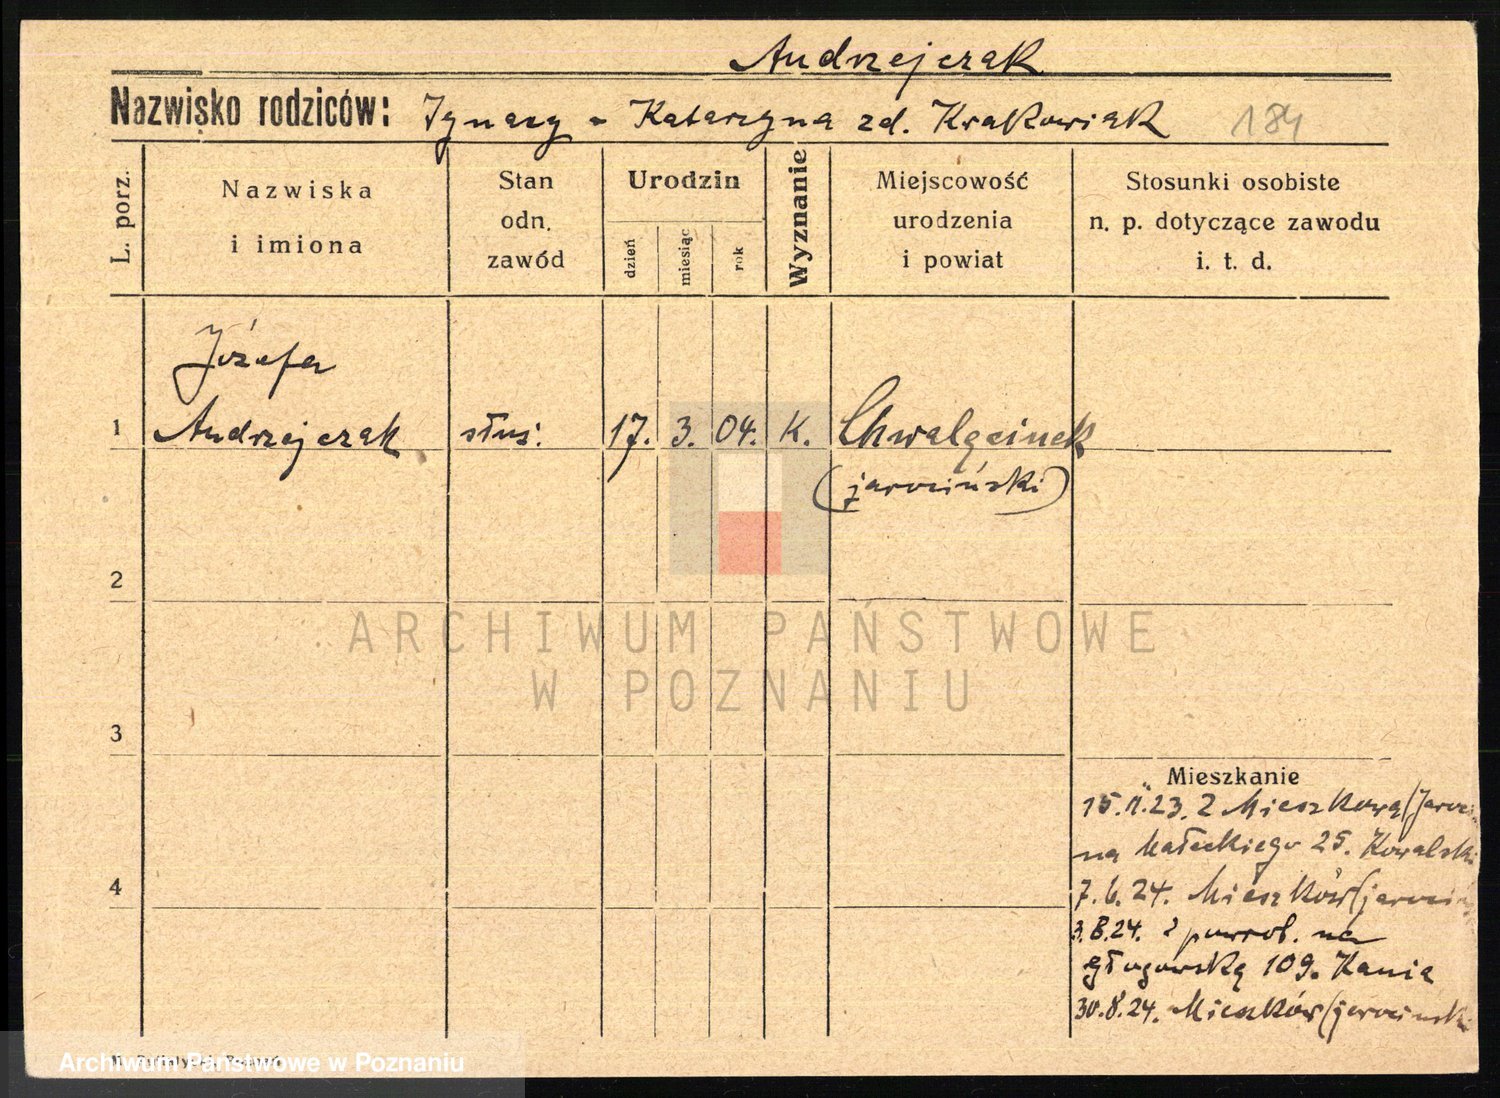 Andrzejczak
Nazwisko rodziców: Ignacy - Katarzyna zd. Krakowiak 184
L. porz.
Nazwiska
i imiona
Stan
odn.
zawód
Urodzin
dzień
miesiąc
rok
Wyznanie
Miejscowość
urodzenia
i powiat
Stosunki osobiste
n. p. dotyczące zawodu
i. t. d.
Józefa
1 Andrzejczak służ. 17. 3. 04. K. Chwalęcinek
(jarociński)
2
3
4
ARCHIWUM PAŃSTWOWE
W POZNANIU
Mieszkanie
15.11.23. z Mieszkowa (Jaroc
na Małeckiego 25. Kowalski
7.6.24. Mieszków (jarociń
3.8.24. z powrot. na
głogowską 109. Kania
30.8.24. Mieszków (jarocinski
Archiwum Państwowe w Poznaniu